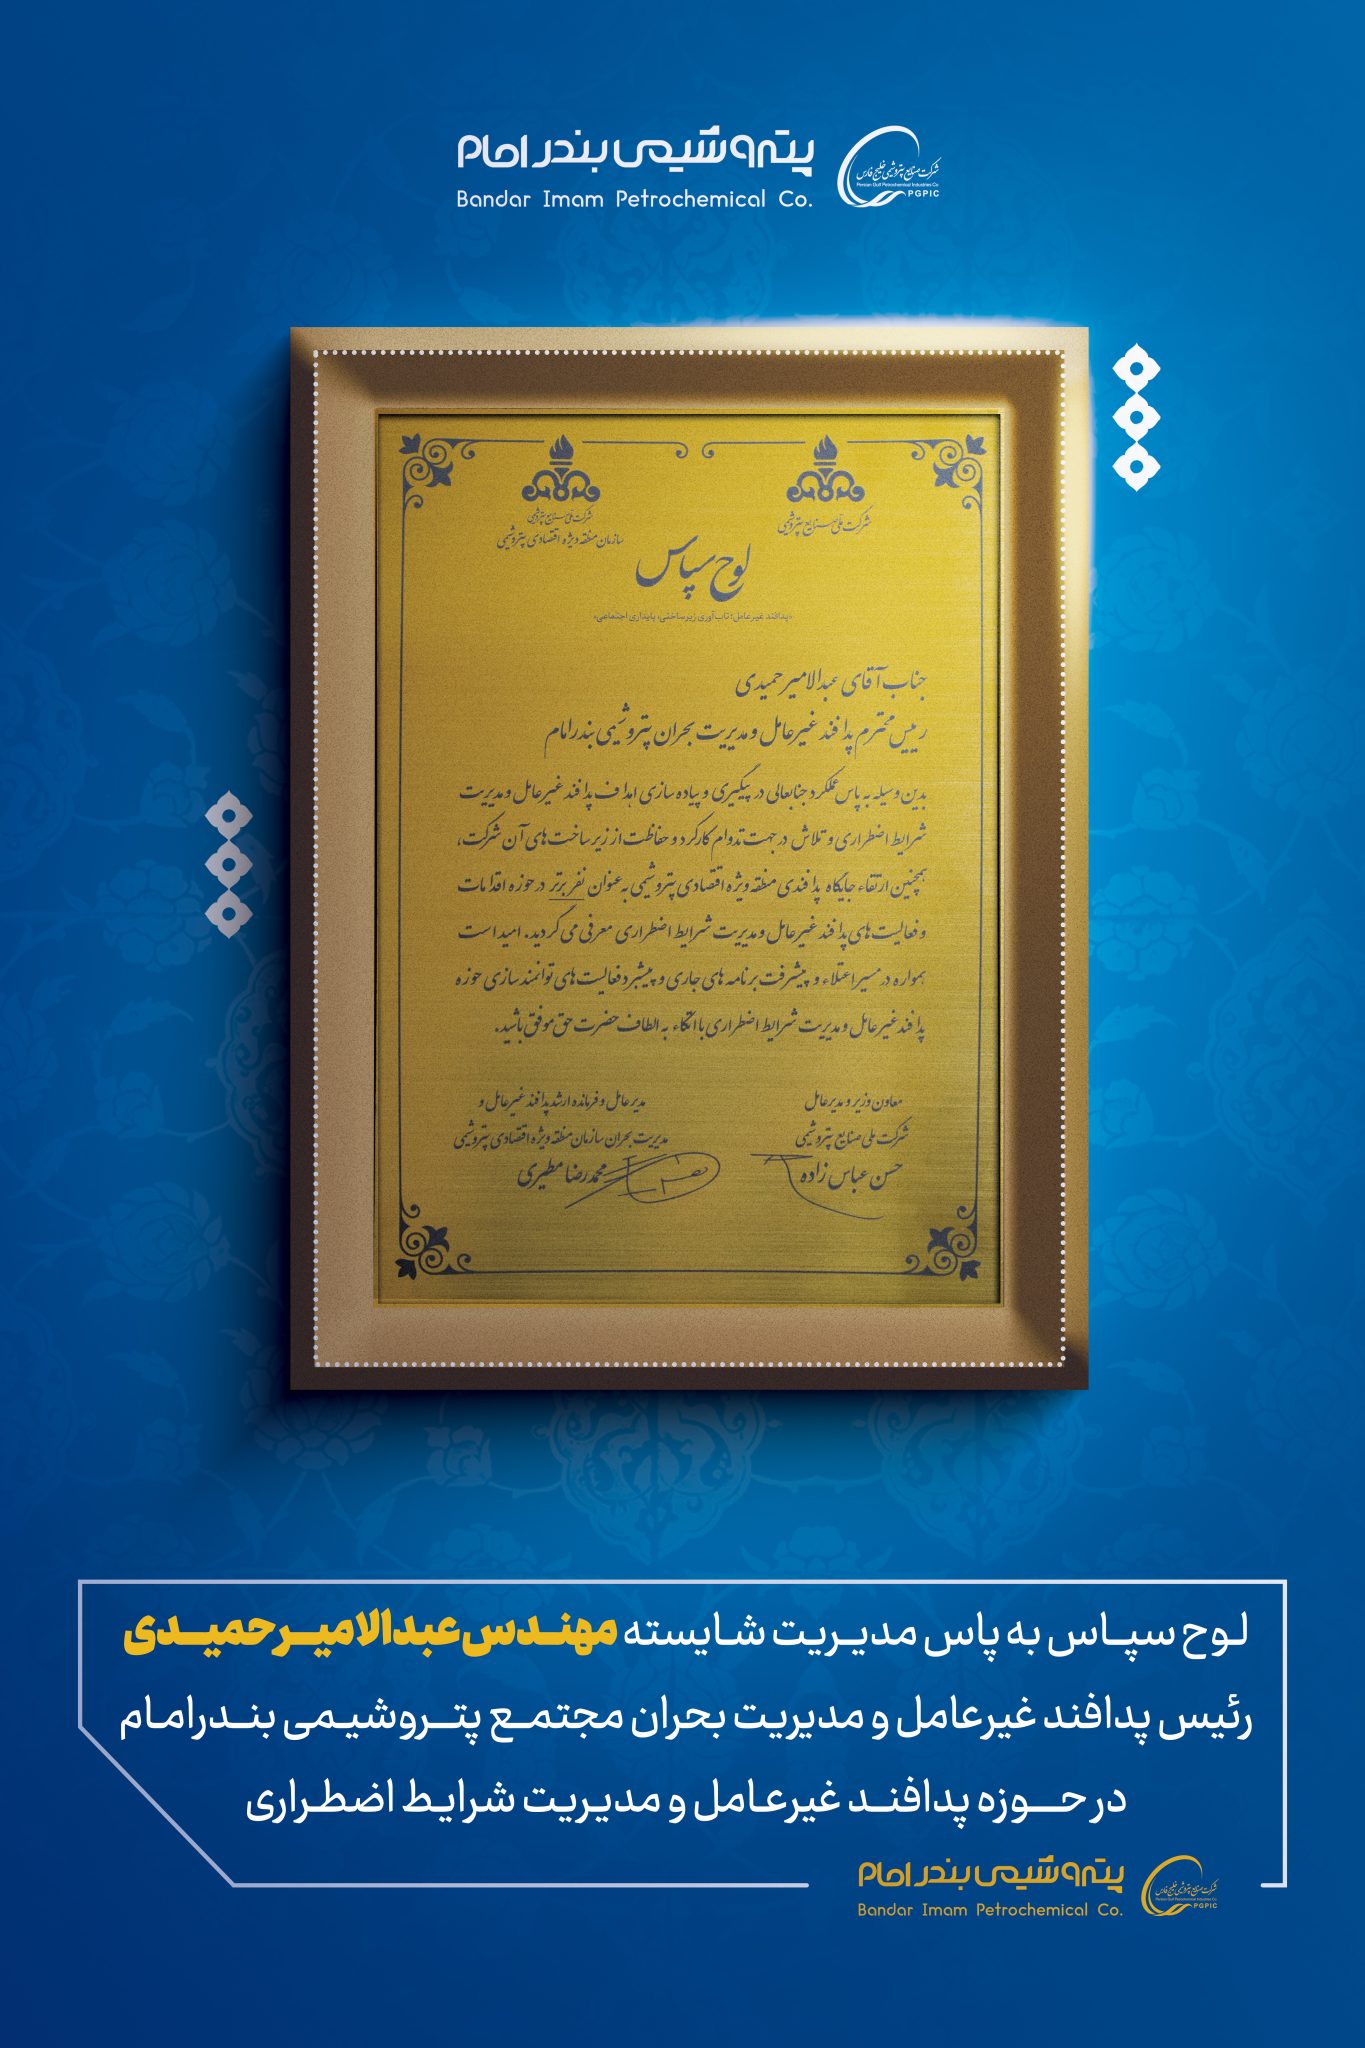 پتروشیمی بندر امام
Bandar Imam Petrochemical Co.
شرکت صنایع پتروشیمی خلیج فارس
Persian Gulf Petrochemical Industries Co
PGPIC
شرکت ملی صنایع پتروشیمی
شرکت ملی صنایع پتروشیمی
سازمان منطقه ویژه اقتصادی پتروشیمی
لوح سپاس
«پدافند غیرعامل؛ تاب‌آوری زیرساختی، پایداری اجتماعی»
جناب آقای عبدالامیر حمیدی
رییس محترم پدافند غیرعامل و مدیریت بحران پتروشیمی بندرامام
بدین وسیله به پاس عملکرد جنابعالی در پیگیری و پیاده سازی اهداف پدافند غیرعامل و مدیریت
شرایط اضطراری و تلاش در جهت تداوم کارکرد و حفاظت از زیرساخت‌های آن شرکت،
همچنین ارتقاء جایگاه پدافندی منطقه ویژه اقتصادی پتروشیمی به عنوان نفر برتر در حوزه اقدامات
و فعالیت های پدافند غیرعامل و مدیریت شرایط اضطراری معرفی می گردید. امید است
همواره در مسیر اعتلاء و پیشرفت برنامه های جاری و پیشبرد فعالیت های توانمند سازی حوزه
پدافند غیرعامل و مدیریت شرایط اضطراری با اتکاء به الطاف حضرت حق موفق باشید.
معاون وزیر و مدیرعامل
شرکت ملی صنایع پتروشیمی
حسن عباس زاده
مدیرعامل و فرمانده ارشد پدافند غیرعامل و
مدیریت بحران سازمان منطقه ویژه اقتصادی پتروشیمی
محمدرضا مطیری
لوح سپاس به پاس مدیریت شایسته مهندس عبدالامیر حمیدی
رئیس پدافند غیرعامل و مدیریت بحران مجتمع پتروشیمی بندرامام
در حوزه پدافند غیرعامل و مدیریت شرایط اضطراری
پتروشیمی بندر امام
Bandar Imam Petrochemical Co.
شرکت صنایع پتروشیمی خلیج فارس
Persian Gulf Petrochemical Industries Co
PGPIC